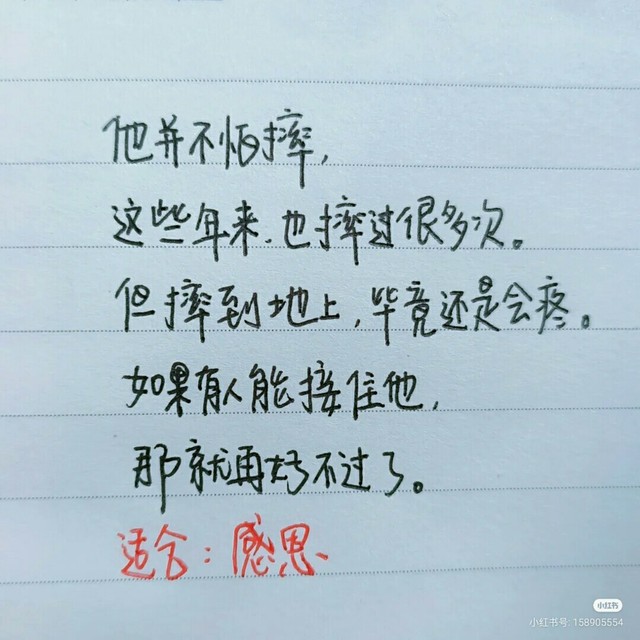 他并不怕摔,
这些年来,也摔过很多次。
但摔到地上,毕竟还是会疼。
如果有人能接住他,
那就再好不过了。
适合：感恩、
小红书
小红书号: 158905554